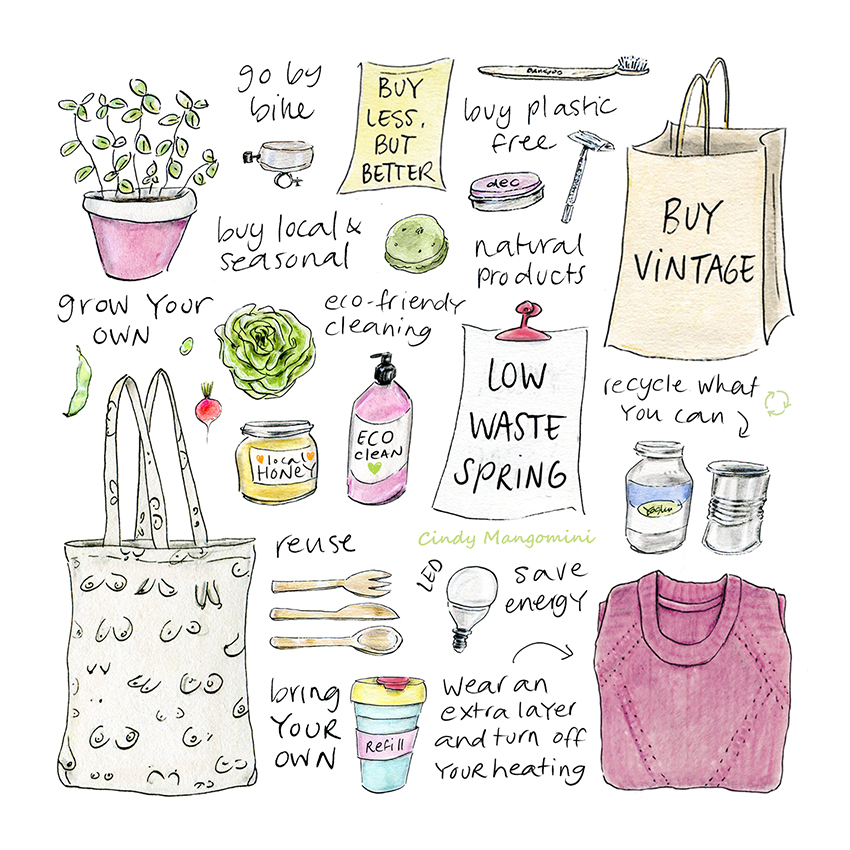 go by
bike
BUY
LESS,
BUT
BETTER
BAMBOO
buy plastic
free
dec
BUY
VINTAGE
buy local &
seasonal
natural
products
grow Your
OWN
eco-friendly
cleaning
LOW
WASTE
SPRING
recycle what
You can
local
HONEY
ECO
clean
Cindy Mangomini
reuse
LED
save
energy
bring
YOUR
OWN
Refill
wear an
extra layer
and turn off
Your heating